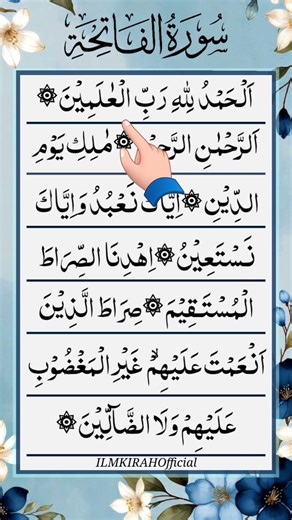 سُورَةُ الْفَاتِحَةِ
اَلْحَمْدُ لِلّٰهِ رَبِّ الْعٰلَمِيْنَ ۞
الرَّحْمٰنِ الرَّحِيْمِ ۞ مٰلِكِ يَوْمِ
الدِّيْنِ ۞ اِيَّاكَ نَعْبُدُ وَاِيَّاكَ
نَسْتَعِيْنُ ۞ اِهْدِنَا الصِّرَاطَ
الْمُسْتَقِيْمَ ۞ صِرَاطَ الَّذِيْنَ
اَنْعَمْتَ عَلَيْهِمْ ۙ غَيْرِ الْمَغْضُوْبِ
عَلَيْهِمْ وَلَا الضَّآلِّيْنَ ۞
ILMKIRAHOfficial